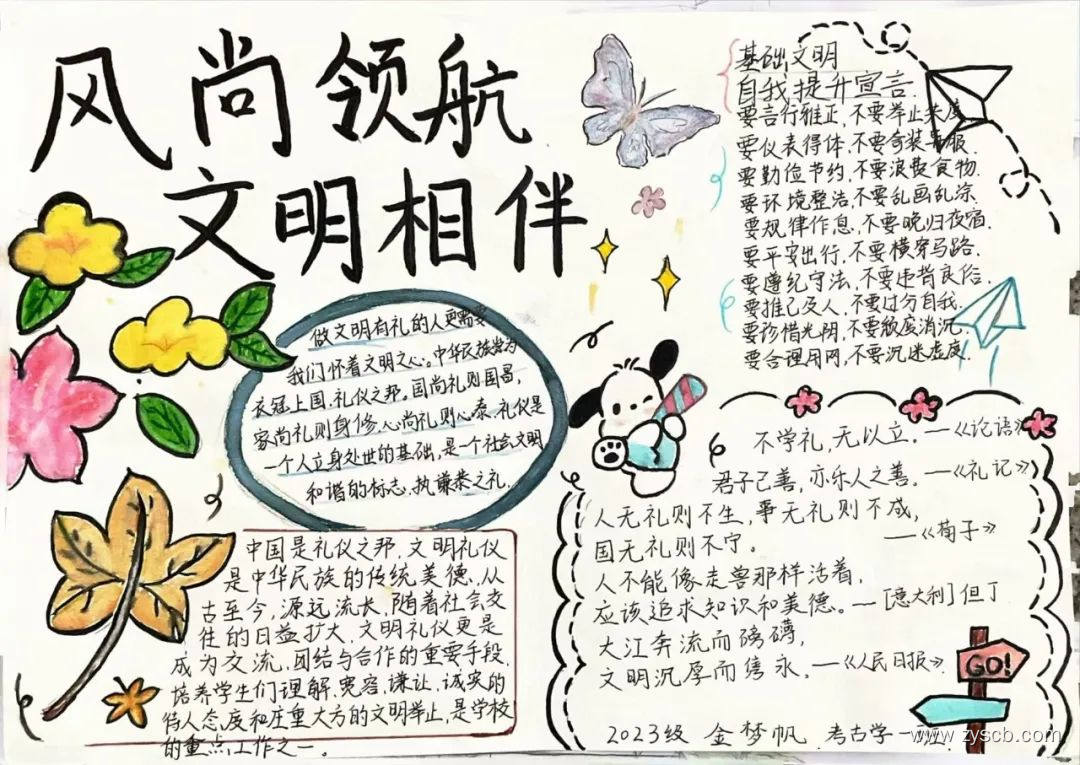 风尚领航
文明相伴
基础文明
自我提升宣言
要言行雅正,不要举止失度
要仪表得体,不要奇装异服
要勤俭节约,不要浪费食物.
要环境整洁,不要乱画乱涂
要规律作息,不要晚归夜宿.
要平安出行,不要横穿马路.
要遵纪守法,不要违背良俗
要推己及人,不要过分自我.
要珍惜光阴,不要散度消沉
要合理用网,不要沉迷虚度
做文明有礼的人更需要
我们怀着文明之心。中华民族发为
衣冠上国,礼仪之邦。国尚礼则国昌,
家尚礼则身修,心尚礼则心泰.礼仪是
一个人立身处世的基础,是一个社会文明
和谐的标志.执谦恭之礼.
不学礼,无以立.—《论语》
君子己善,亦乐人之善.—《礼记》
人无礼则不生,事无礼则不成,
—《荀子》
国无礼则不宁。
人不能像走兽那样活着,
应该追求知识和美德。—[意大利]但丁
大江奔流而磅礴,
文明沉厚而隽永,—《人民日报》
中国是礼仪之邦,文明礼仪
是中华民族的传统美德.从
古至今,源远流长,随着社会交
往的日益扩大,文明礼仪更是
成为交流,团结与合作的重要手段.
培养学生们理解,宽容,谦让,诚实的
待人态度和庄重大方的文明举止,是学校
的重点工作之一。
GO!
2023级 金梦帆 考古学一班
www.zyscb.com